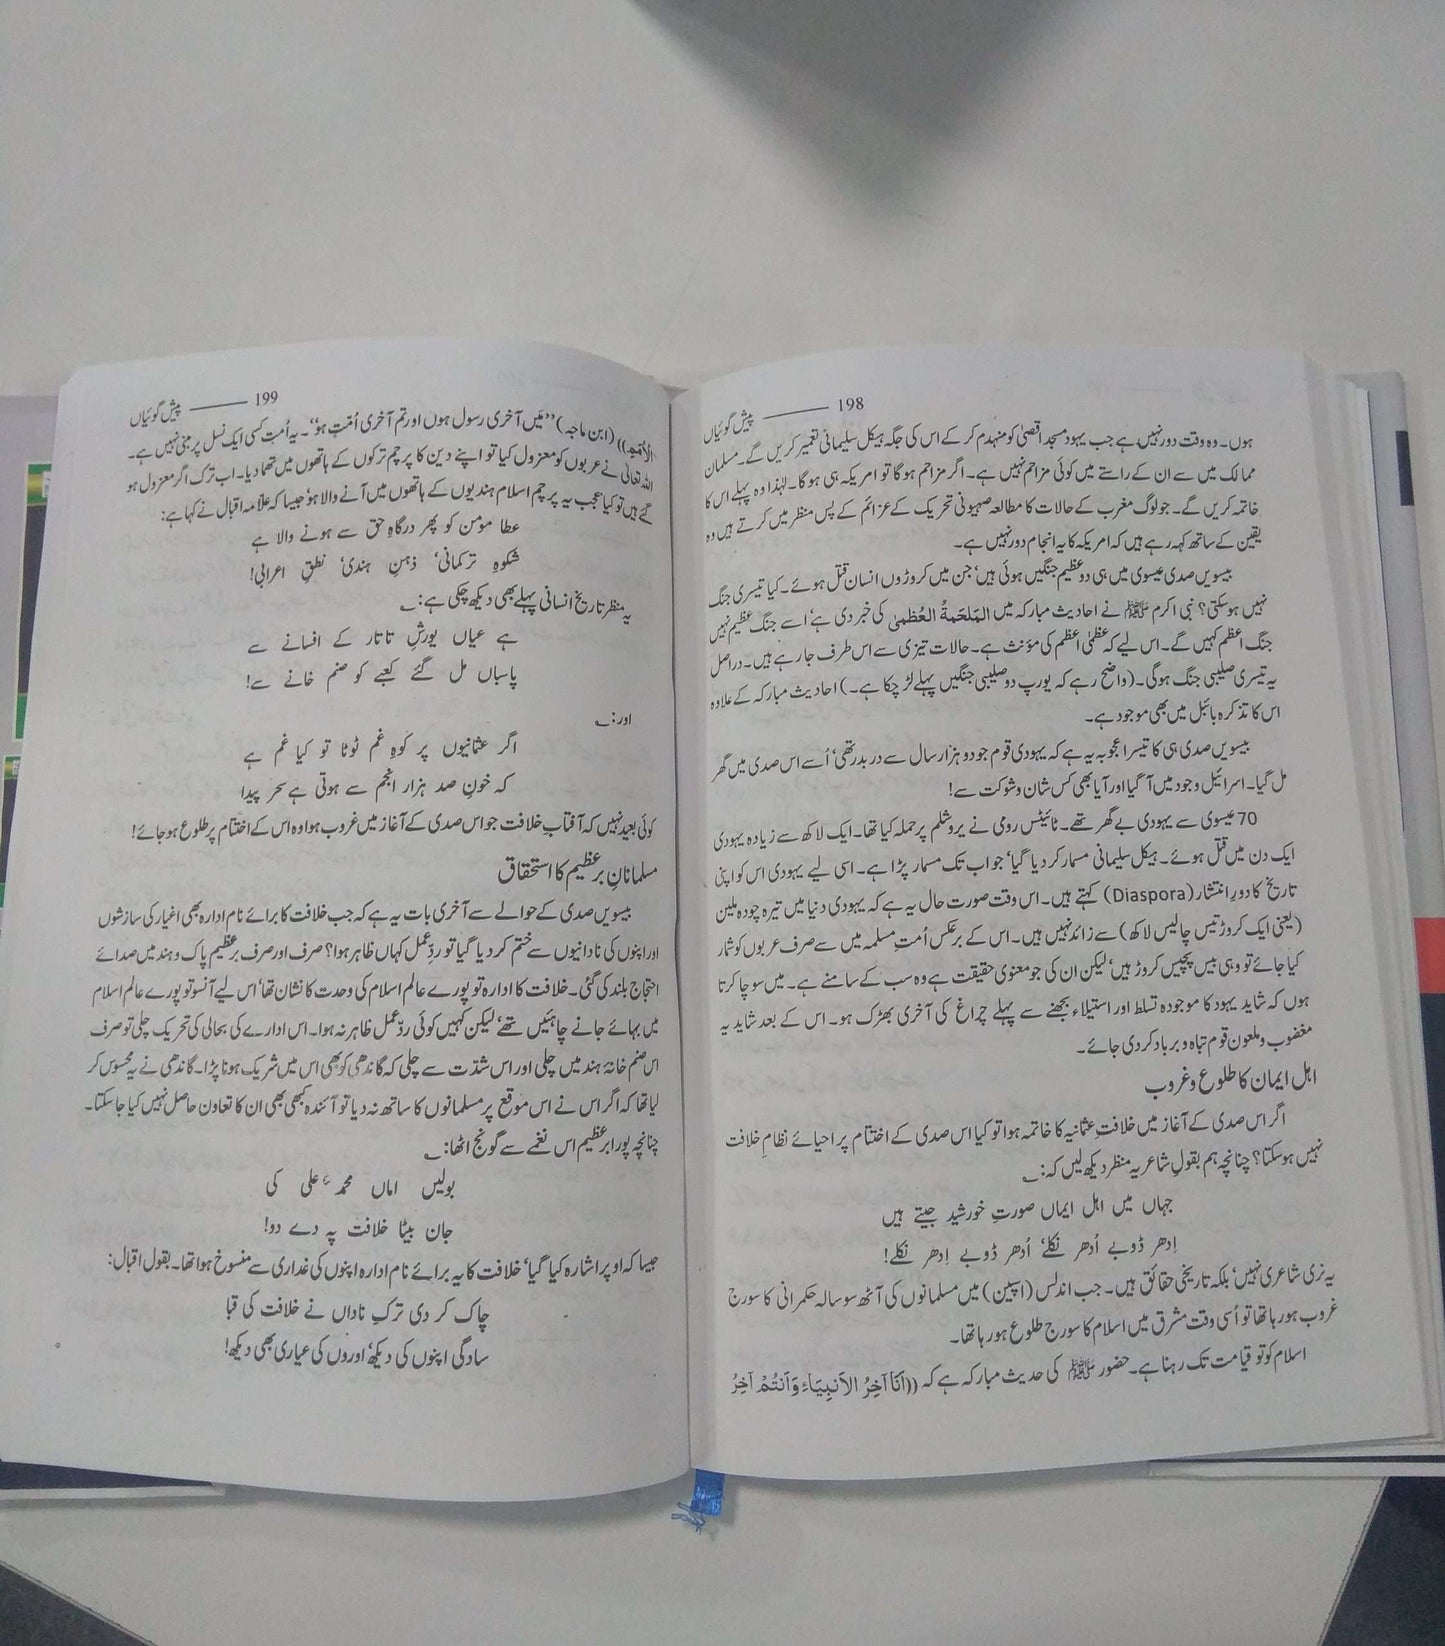 پیش گوئیاں ——— 198
ہوں۔ وہ وقت دور نہیں ہے جب یہود مسجد اقصیٰ کو منہدم کر کے اس کی جگہ ہیکل سلیمانی تعمیر کریں گے۔ مسلمان
ممالک میں سے ان کے راستے میں کوئی مزاحم نہیں ہے۔ اگر مزاحم ہوگا تو امریکہ ہی ہوگا۔ لہٰذا وہ پہلے اس کا
خاتمہ کریں گے۔ جو لوگ مغرب کے حالات کا مطالعہ صہیونی تحریک کے عزائم کے پس منظر میں کرتے ہیں وہ
یقین کے ساتھ کہہ رہے ہیں کہ امریکہ کا یہ انجام دور نہیں ہے۔
بیسویں صدی عیسوی میں ہی دو عظیم جنگیں ہوئی ہیں‘ جن میں کروڑوں انسان قتل ہوئے۔ کیا تیسری جنگ
نہیں ہو سکتی؟ نبی اکرم ﷺ نے احادیث مبارکہ میں المَلحَمۃُ العُظمیٰ کی خبر دی ہے‘ اسے جنگ عظیم نہیں
جنگ اعظم کہیں گے۔ اس لیے کہ عظمٰی اعظم کی مؤنث ہے۔ حالات تیزی سے اس طرف جا رہے ہیں۔ دراصل
یہ تیسری صلیبی جنگ ہوگی۔ (واضح رہے کہ یورپ دو صلیبی جنگیں پہلے لڑ چکا ہے۔) احادیث مبارکہ کے علاوہ
اس کا تذکرہ بائبل میں بھی موجود ہے۔
بیسویں صدی ہی کا تیسرا عجوبہ یہ ہے کہ یہودی قوم جو دو ہزار سال سے دربدر تھی‘ اُسے اس صدی میں گھر
مل گیا۔ اسرائیل وجود میں آ گیا اور آیا بھی کس شان و شوکت سے!
70 عیسوی سے یہودی بے گھر تھے۔ ٹائیٹس رومی نے یروشلم پر حملہ کیا تھا۔ ایک لاکھ سے زیادہ یہودی
ایک دن میں قتل ہوئے۔ ہیکل سلیمانی مسمار کر دیا گیا‘ جو اب تک مسمار پڑا ہے۔ اسی لیے یہودی اس کو اپنی
تاریخ کا دورِ انتشار (Diaspora) کہتے ہیں۔ اس وقت صورت حال یہ ہے کہ یہودی دنیا میں تیرہ چودہ ملین
(یعنی ایک کروڑ تیس چالیس لاکھ) سے زائد نہیں ہیں۔ اس کے برعکس اُمتِ مسلمہ میں سے صرف عربوں کو شمار
کیا جائے تو وہی بیس پچیس کروڑ ہیں‘ لیکن ان کی جو معنوی حقیقت ہے وہ سب کے سامنے ہے۔ میں سوچا کرتا
ہوں کہ شاید یہود کا موجودہ تسلط اور استیلاء بجھنے سے پہلے چراغ کی آخری بھڑک ہو۔ اس کے بعد شاید یہ
مغضوب و ملعون قوم تباہ و برباد کر دی جائے۔
اہل ایمان کا طلوع و غروب
اگر اس صدی کے آغاز میں خلافتِ عثمانیہ کا خاتمہ ہوا تو کیا اس صدی کے اختتام پر احیائے نظامِ خلافت
نہیں ہو سکتا؟ چنانچہ ہم بقولِ شاعر یہ منظر دیکھ لیں کہ: ؎
جہاں میں اہل ایماں صورتِ خورشید جیتے ہیں
اِدھر ڈوبے اُدھر نکلے‘ اُدھر ڈوبے اِدھر نکلے!
یہ نری شاعری نہیں‘ بلکہ تاریخی حقائق ہیں۔ جب اندلس (اسپین) میں مسلمانوں کی آٹھ سو سالہ حکمرانی کا سورج
غروب ہو رہا تھا تو اُسی وقت مشرق میں اسلام کا سورج طلوع ہو رہا تھا۔
اسلام کو تو قیامت تک رہنا ہے۔ حضور ﷺ کی حدیث مبارکہ ہے کہ ((اَنَا آخِرُ الاَنبِیَاءِ وَ اَنتُمْ آخِرُ
پیش گوئیاں ——— 199
الاُمَمِ)) (ابن ماجہ) ’’میں آخری رسول ہوں اور تم آخری اُمّتِ ہو‘‘۔ یہ اُمت کسی ایک نسل پر مبنی نہیں ہے۔
اللہ تعالیٰ نے عربوں کو معزول کیا تو اپنے دین کا پرچم ترکوں کے ہاتھوں میں تھما دیا۔ اب ترک اگر معزول ہو
گئے ہیں تو کیا عجب یہ پرچم اسلام ہندیوں کے ہاتھوں میں آنے والا ہو‘ جیسا کہ علامہ اقبال نے کہا ہے:
عطا مومن کو پھر درگاہِ حق سے ہونے والا ہے
شکوہِ ترکمانی‘ ذہنِ ہندی‘ نطقِ اعرابی!
یہ منظر تاریخِ انسانی پہلے بھی دیکھ چکی ہے: ؎
ہے عیاں یورشِ تاتار کے افسانے سے
پاسباں مل گئے کعبے کو صنم خانے سے!
اور: ؎
اگر عثمانیوں پر کوہِ غم ٹوٹا تو کیا غم ہے
کہ خونِ صد ہزار انجم سے ہوتی ہے سحر پیدا
کوئی بعید نہیں کہ آفتابِ خلافت جو اس صدی کے آغاز میں غروب ہوا وہ اس کے اختتام پر طلوع ہو جائے!
مسلمانانِ برعظیم کا استحقاق
بیسویں صدی کے حوالے سے آخری بات یہ ہے کہ جب خلافت کا برائے نام ادارہ بھی اغیار کی سازشوں
اور اپنوں کی نادانیوں سے ختم کر دیا گیا تو ردِّعمل کہاں ظاہر ہوا؟ صرف اور صرف برعظیم پاک و ہند میں صدائے
احتجاج بلند کی گئی۔ خلافت کا ادارہ تو پورے عالم اسلام کی وحدت کا نشان تھا‘ اس لیے آنسو تو پورے عالم اسلام
میں بہائے جانے چاہئیں تھے‘ لیکن کہیں کوئی ردِّعمل ظاہر نہ ہوا۔ اس ادارے کی بحالی کی تحریک چلی تو صرف
اس صنم خانۂ ہند میں چلی اور اس شدّت سے چلی کہ گاندھی کو بھی اس میں شریک ہونا پڑا۔ گاندھی نے یہ محسوس کر
لیا تھا کہ اگر اس نے اس موقع پر مسلمانوں کا ساتھ نہ دیا تو آئندہ کبھی بھی ان کا تعاون حاصل نہیں کیا جا سکتا۔
چنانچہ پورا برعظیم اس نغمے سے گونج اٹھا: ؎
بولیں اماں محمد علی کی
جان بیٹا خلافت پہ دے دو!
جیسا کہ اوپر اشارہ کیا گیا‘ خلافت کا یہ برائے نام ادارہ اپنوں کی غداری سے منسوخ ہوا تھا۔ بقول اقبال:
چاک کر دی ترکِ ناداں نے خلافت کی قبا
سادگی اپنوں کی دیکھ‘ اوروں کی عیاری بھی دیکھ!